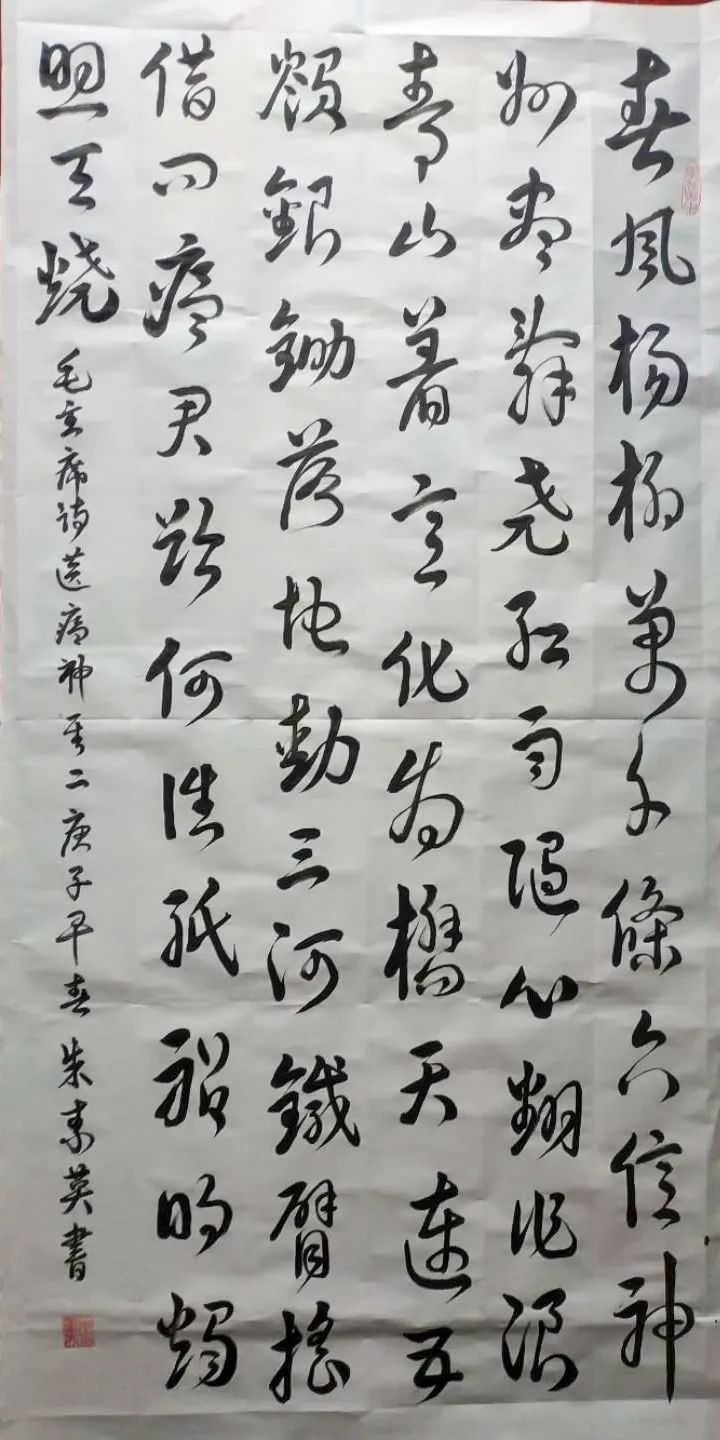 春風楊柳萬千條六億神
州盡舜尧紅雨隨心翻作浪
青山着意化為橋天連五
嶺銀鋤落地動三河鐵臂摇
借问瘟君欲何往紙船明燭
照天烧 毛主席诗送瘟神其二庚子早春 朱素英書